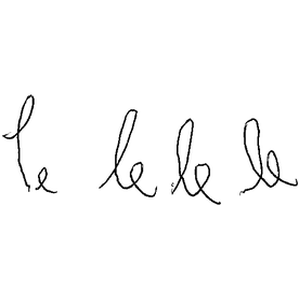 le le le le